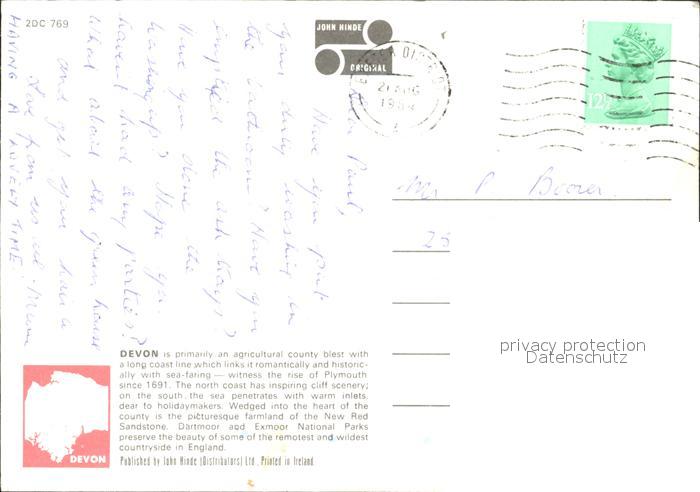 2DC 769
JOHN HINDE
ORIGINAL
21 AUG
12½
Mr P Boorer
Dear Paul,
Have you put
your dirty washing in
the bathroom? Have you
emptied the ash trays?
Have you done the
washing up? Hope you
haven't had any parties?
What about the green house
and get your hair
Love from us all - Mum
HAVING A LOVELY TIME.
DEVON is primarily an agricultural county blest with
a long coast line which links it romantically and historic-
ally with sea-faring — witness the rise of Plymouth
since 1691. The north coast has inspiring cliff scenery;
on the south, the sea penetrates with warm inlets,
dear to holidaymakers. Wedged into the heart of the
county is the picturesque farmland of the New Red
Sandstone. Dartmoor and Exmoor National Parks
preserve the beauty of some of the remotest and wildest
countryside in England.
Published by John Hinde (Distributors) Ltd. Printed in Ireland
DEVON
privacy protection
Datenschutz